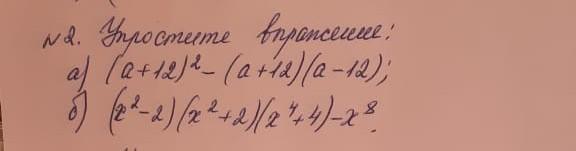 №2. Упростите выражение:
а) (a+12)² – (a+12)(a–12);
б) (x²–2)(x²+2)(x⁴+4)–x⁸.